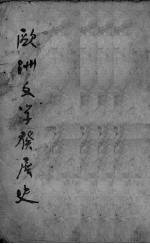 歐洲文学發展史